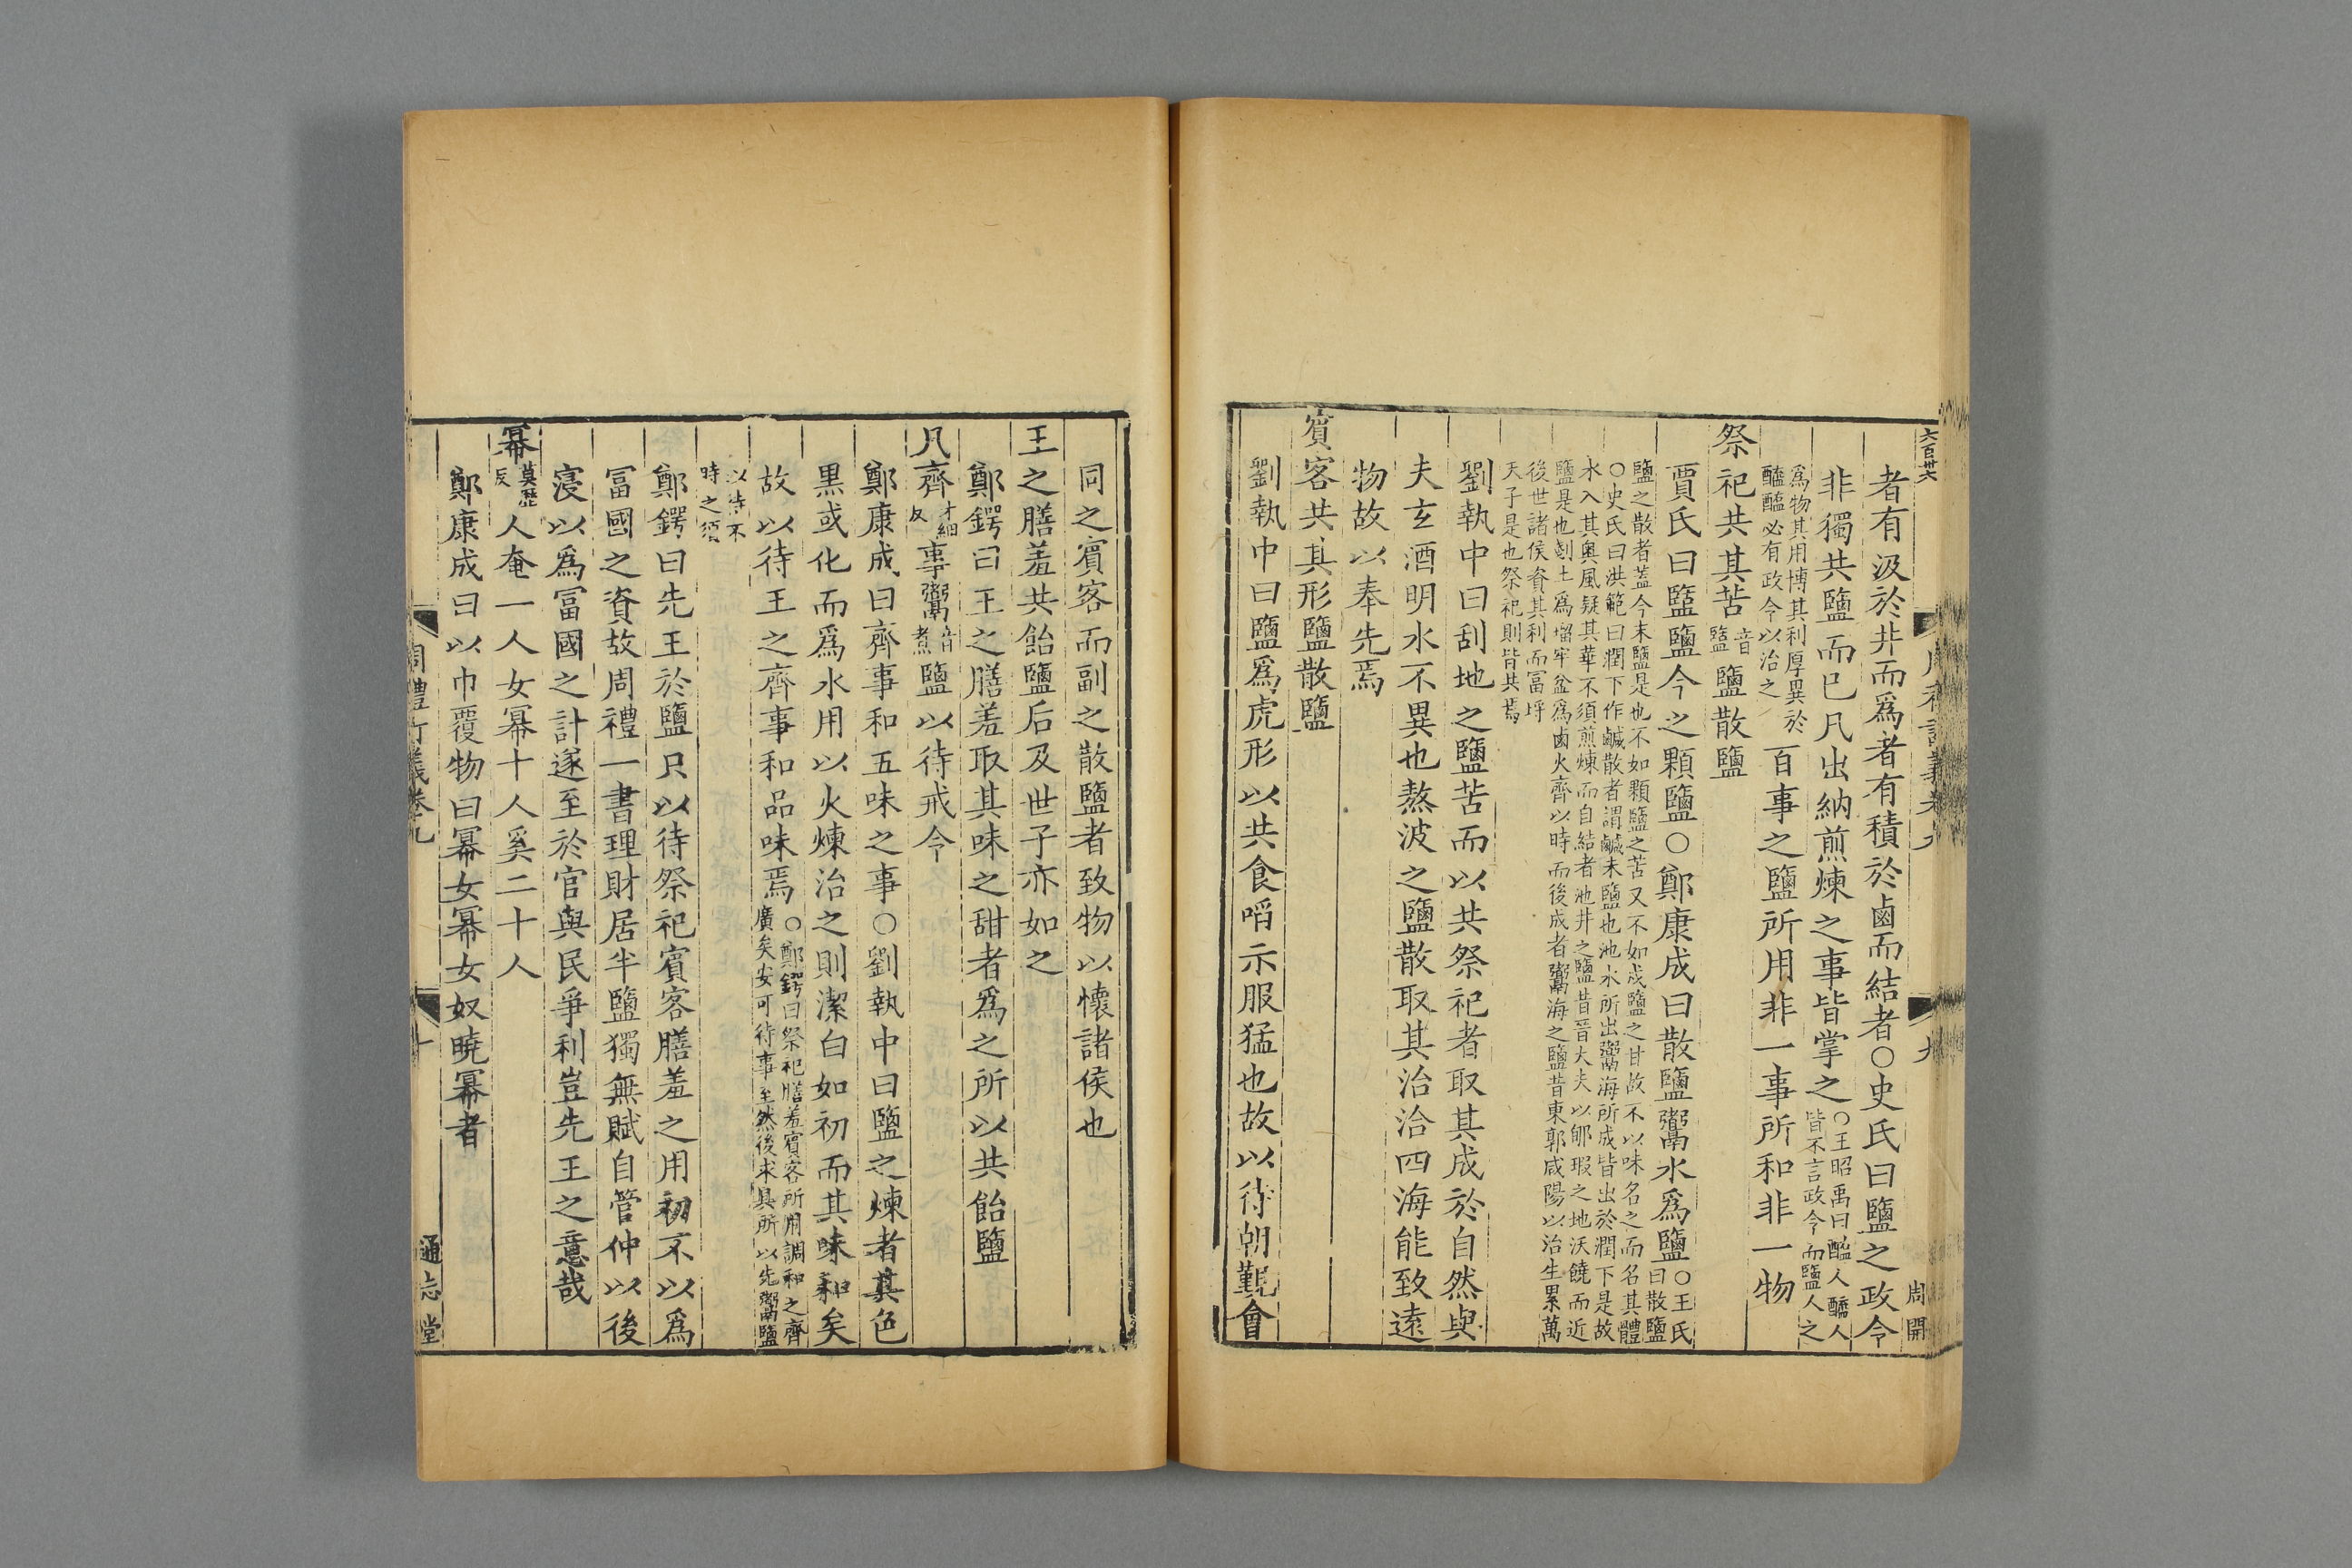 六百卅六
周開
者有汲於井而爲者有積於鹵而結者○史氏曰鹽之政令
非獨共鹽而已凡出納煎煉之事皆掌之○王昭禹曰醢人醯人
皆不言政令而鹽人之
爲物其用博其利厚異於
醯醢必有政令以治之
百事之鹽所用非一事所和非一物
祭祀共其苦音
盬鹽散鹽
賈氏曰盬鹽今之顆鹽○鄭康成曰散鹽鬻水爲鹽○王氏
曰散鹽
鹽之散者蓋今末鹽是也不如顆鹽之苦又不如飴鹽之甘故不以味名之而名其體
○史氏曰洪範曰潤下作鹹散者謂鹹末鹽也池水所出鬻海所成皆出於潤下是故
水入其奥風疑其華不須煎煉而自結者池井之鹽昔晉大夫以郇瑕之地沃饒而近
鹽是也刮土爲塯牢盆爲鹵火齊以時而後成者鬻海之鹽昔東郭咸陽以治生累萬
後世諸侯資其利而冨埒
天子是也祭祀則皆共焉
劉執中曰刮地之鹽苦而以共祭祀者取其成於自然與
夫玄酒明水不異也熬波之鹽散取其治洽四海能致遠
物故以奉先焉
賓客共其形鹽散鹽
劉執中曰鹽爲虎形以共食㗖示服猛也故以待朝覲會
周禮訂義卷九
九
同之賓客而副之散鹽者致物以懷諸侯也
王之膳羞共飴鹽后及世子亦如之
鄭鍔曰王之膳羞取其味之甜者爲之所以共飴鹽
凡齊才細
反事鬻音
煮鹽以待戒令
鄭康成曰齊事和五味之事○劉執中曰鹽之煉者其色
黒或化而爲水用以火煉治之則潔白如初而其味和矣
故以待王之齊事和品味焉○鄭鍔曰祭祀膳羞賓客所用調和之齊
廣矣安可待事至然後求具所以先鬻鹽
以待不
時之須
鄭鍔曰先王於鹽只以待祭祀賓客膳羞之用初不以爲
冨國之資故周禮一書理財居半鹽獨無賦自管仲以後
寖以爲冨國之計遂至於官與民爭利豈先王之意哉
冪莫歷
反人奄一人女冪十人奚二十人
鄭康成曰以巾覆物曰冪女冪女奴曉冪者
周禮訂義卷九
十
通志堂